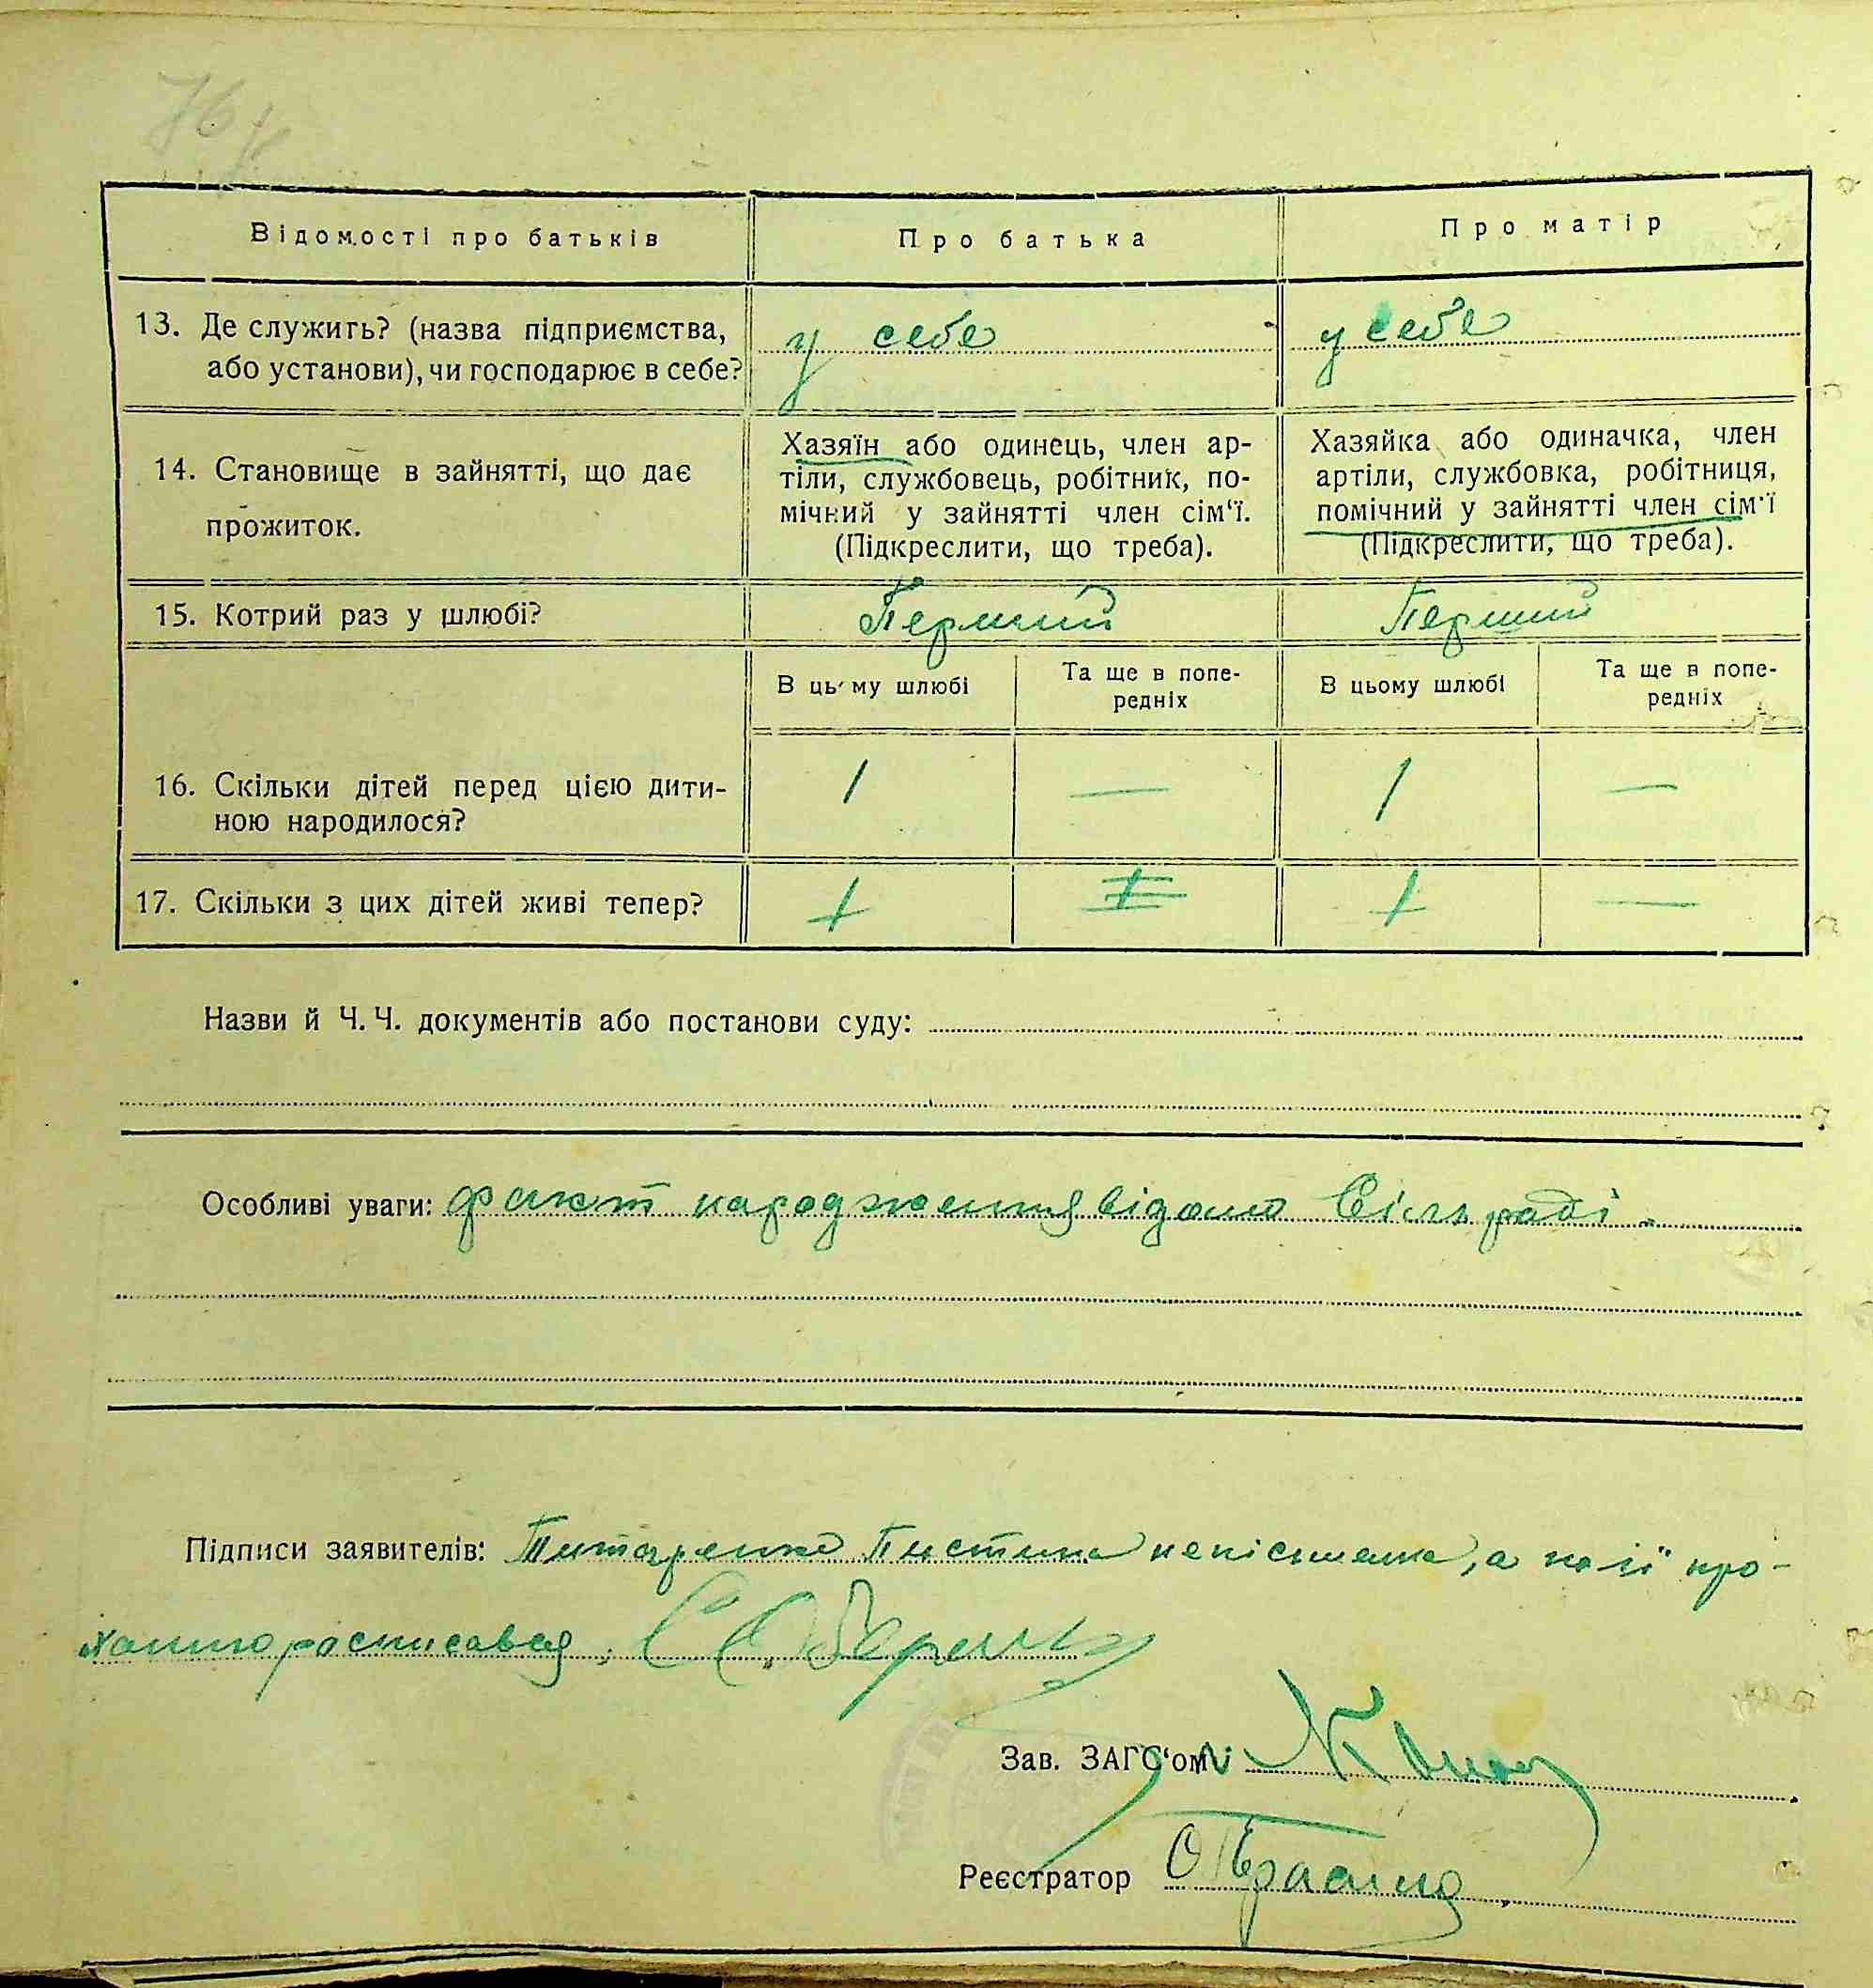 76
Відомості про батьків
Про батька
Про матір
13. Де служить? (назва підприємства,
або установи), чи господарює в себе?
у себе
у себе
14. Становище в зайнятті, що дає
прожиток.
Хазяїн або одинець, член ар-
тіли, службовець, робітник, по-
мічний у зайнятті член сім'ї.
(Підкреслити, що треба).
Хазяйка або одиначка, член
артіли, службовка, робітниця,
помічний у зайнятті член сім'ї
(Підкреслити, що треба).
15. Котрий раз у шлюбі?
Перший
Перший
В цьому шлюбі
Та ще в попе-
редніх
В цьому шлюбі
Та ще в попе-
редніх
16. Скільки дітей перед цією дити-
ною народилося?
1
—
1
—
17. Скільки з цих дітей живі тепер?
—
Назви й Ч. Ч. документів або постанови суду:
Особливі уваги: факт народження відомо Сільраді.
Підписи заявителів: Титаренко Пистина неписьменна, а на її про-
ханню расписався
Зав. ЗАГС'ом
Реєстратор